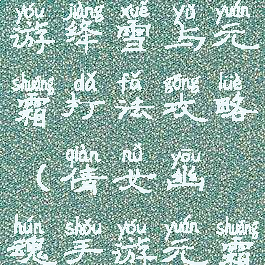 yóu jiàng xuě yǔ yuán
游绛雪与元
shuāng dǎ fǎ gōng lüè
霜打法攻略
qiàn nǚ yōu
(倩女幽
hún shǒu yóu yuán shuāng
魂手游元霜